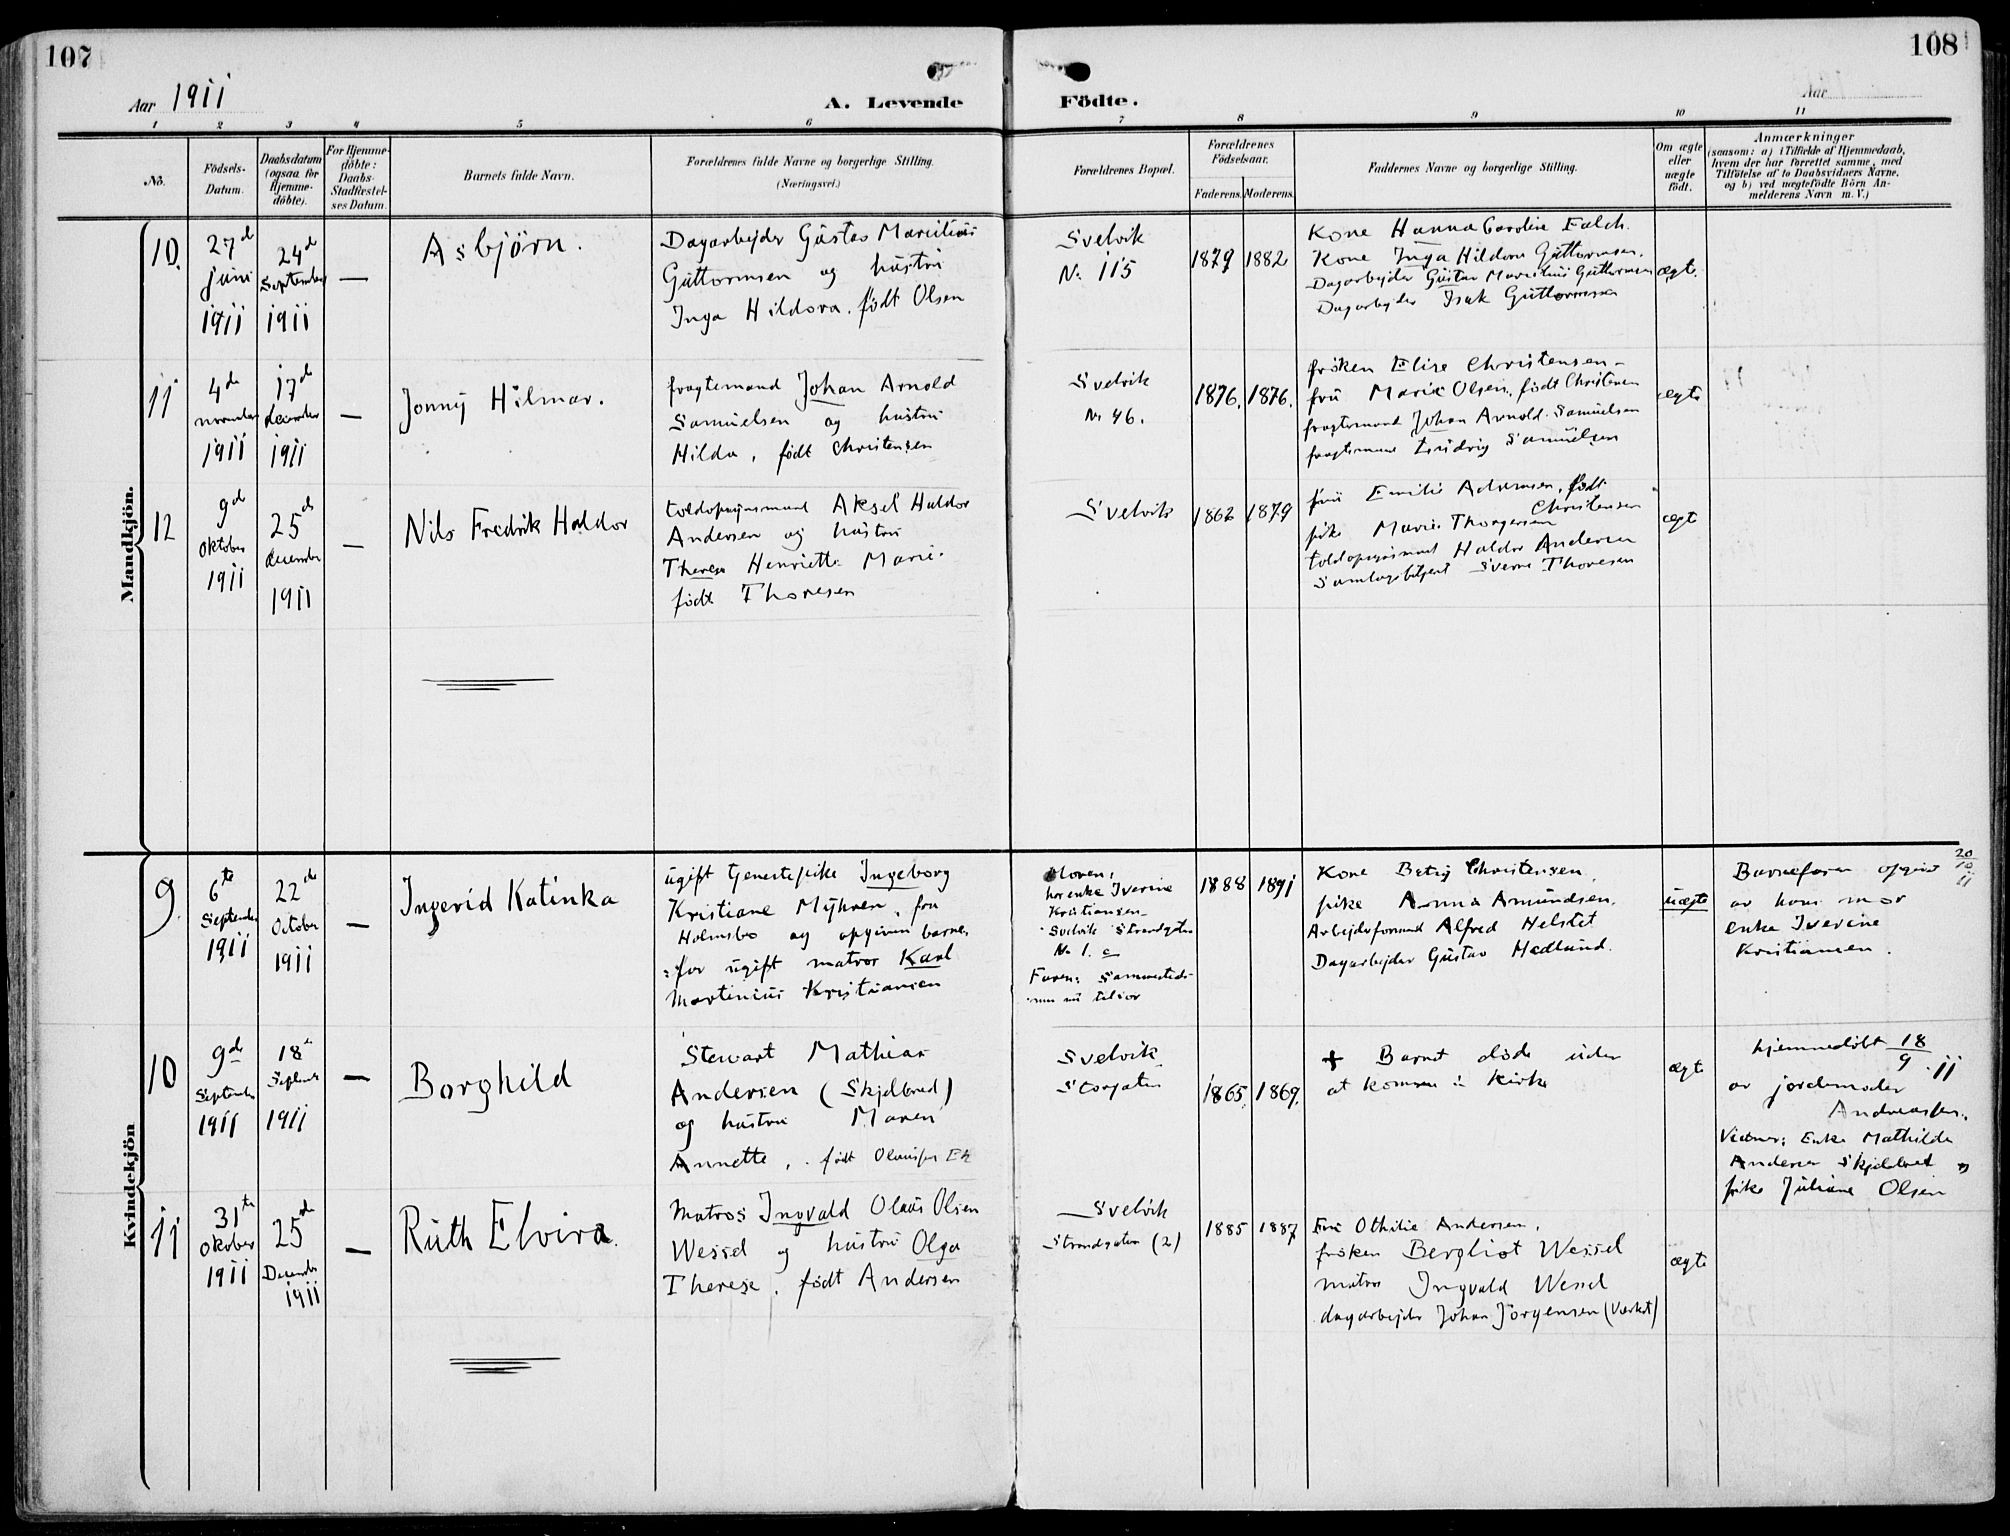 107
108
Aar 1911
A. Levende
Födte.
Aar
1
2
3
4
5
6
7
8
9
10
11
No.
Födsels-
Datum.
Daabsdatum
(ogsaa for
Hjemme-
döbte).
For Hjemme-
döbte:
Daabs-
Stadfæstel-
ses Datum.
Barnets fulde Navn.
Forældrenes fulde Navne og borgerlige Stilling.
(Næringsvei.)
Forældrenes Bopæl.
Forældrenes
Födselsaar.
Faderens.
Moderens.
Faddernes Navne og borgerlige Stilling.
Om ægte
eller
uægte
födt.
Anmærkninger
(saasom: a) i Tilfælde af Hjemmedaab,
hvem der har forrettet samme, med
Tilföielse af to Daabsvidners Navne,
og b) ved uægtefödte Börn An-
melderens Navn m. V.)
Mandkjön.
10.
27d
juni
1911
24d
September
1911
—
Asbjörn.
Dagarbejder Güstav
Guttormsen og hustru
Inga Hildora. født Olsen
Svelvik
N. 115
1879
1882
Kone Hanna Caroline Falch.
Kone Inga Hildora Guttormsen.
Dagarbejder Güstav Guttormsen
Dagarbejder Isak Guttormsen
ægte.
11
4de
november
1911
17de
december
1911
—
Jonny Hilmar.
fragtemand Johan Arnold
Samuelsen og hustru
Hilda, født Christensen
Svelvik
Nr 46.
1876.
1876.
frøken Elise Christensen
frü Marie Olsen, født Christensen
fragtemand Johan Arnold Samuelsen
fragtemand Ludvig Samuelsen
ægte
12
9de
Oktober
1911
25de
december
1911
—
Nils Fredrik Haldor
toldopsynsmand Aksel Haldor
Andersen og hustru
Therese Henriette Marie
født Thoresen
Svelvik
1862
1879
frü Emilie født
Christensen
pike Marie
toldopsynsmand Haldor Andersen
Sverre Thoresen
ægte
Kvindekjön
9.
6te
September
1911
22de
October
1911
—
Ingerid Katinka
ugift tjenestepike Ingeborg
Kristiane Myhren, fra
Holmsbo og opgiven barne-
far ugift matros Karl
Martinius Kristiansen
Moren:
hos enke Iverine
Kristiansen
Svelvik Strandgaten
No 1. c
Faren: Sammesteds
1888
1891
Kone Betzy Christensen
pike Anna Amundsen.
Arbejdsformand Alfred Helstet
Dagarbejder Güstav Hedlund.
uægte
Barnefaren opgivet 20/10 11
av hans mor
enke Iverine
Kristiansen.
10
9de
September
1911
18de
September
1911
—
Borghild
Stewart Mathias
Andersen (Skjelbred)
og hustru Maren
Annette, født
Svelvik
Storgaten
1865.
1869.
+ Barnet døde uden
at komme i Kirke
ægte
hjemmedøbt 18/9 .11
av jordemoder
Andreassen.
Vidner: Enke Mathilde
Andersen Skjelbred og
pike Juliane Olsen
11
31te
Oktober
1911
25de
December
1911
—
Ruth Elvira.
Matros Ingvald Olaus Olsen
Wessel og hustru Olga
Therese, født Andersen
Svelvik
Strandgaten (2)
1885
1887
Frü Othilie Andersen,
frøken Bergliot Wessel
matros Ingvald Wessel
dagarbejder Johan Jörgensen (Værket)
ægte